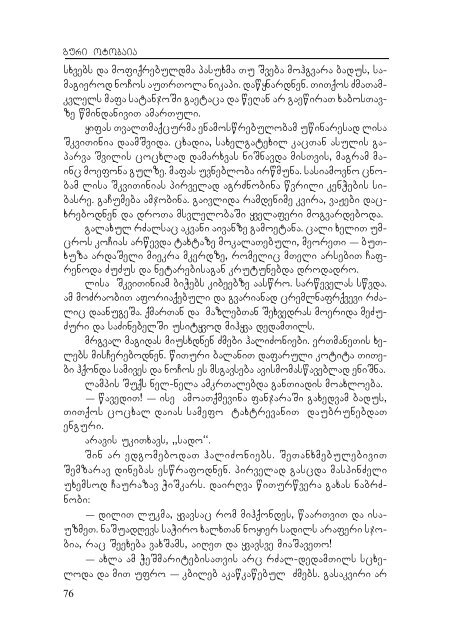 გური ოტობაია
სხვებს და მოფიქრებულმა პასუხმა თუ შვება მოჰგვარა ბადუს, სა-
მაგიეროდ ნოჩოს აუთრთოლა ნიკაპი. დაწყნარდნენ. თითქოს ძმათამ-
კვლელს მაფა სატანჯოში გაეტაცა და წეღან არ გაეწირათ ხაბოსთავ-
ზე წმინდანივით ამართული.
ყიფას თვალთმაქცურმა ენამოსწრებულობამ უწინარესად ლისა
შკვითინია დააშვიდა. ცხადია, სახელგატეხილ კაცთან ასულის გა-
პარვა შვილის ცოცხლად დამარხვას ნიშნავდა მისთვის, მაგრამ მა-
ინც მოეფონა გულზე. მაფას უვნებლობა ირწმუნა. სასიამოვნო ცნო-
ბამ ლისა შკვითინიას პირველად აგრძნობინა წვრილი კენჭების სი-
ბასრე. გაჩუმება ამჯობინა. გაივლიდა რამდენიმე კვირა, ვაჟები დაც-
ხრებოდნენ და დროთა მსვლელობაში ყველაფერი მოგვარდებოდა.
გალახულ რძალსაც აკვანი აივანზე გამოეტანა. ცალი ხელით უმ-
ცროს კოჩიას არწევდა ტახტზე მოკალათებული, მეორეთი — ბუთ-
ხუზა არდაშელი მიეკრა მკერდზე, რომელიც მთელი არსებით ჩაფ-
რენოდა ძუძუს და ნეტარებისაგან კრუტუნებდა დროდადრო.
ლისა შკვითინიამ ბიჭებს კიბეებზე აასწრო. სარწეველას სწვდა.
ამ მოძრაობით აფორიაქებული და გვარიანად ცრემლნაფრქვევი რძა-
ლიც დაანუგეშა. ქმართან და მაზლებთან შეხვედრას მოერიდა მეძუ-
ძური და საძინებელში უსიტყვოდ მიჰყვა დედამთილს.
მრგვალ მაგიდას მიუსხდნენ ძმები ჰალიძონიები. ერთმანეთის ხე-
ლებს მისჩერებოდნენ. წითური ბალანით დაფარული კოტიტა თითე-
ბი ჰქონდა სამივეს და ნოჩოს ეს მსგავსება ავისმომასწავებლად ენიშნა.
ლამპის შუქს ნელ-ნელა ამკრთალებდა განთიადის მოახლოება.
— წავედით! — ისე ამოათქმევინა ფანჯარაში გახედვამ ბადუს,
თითქოს ცოცხალ დაიას სამეფო ტახტრევანით დაუბრუნებდათ
ენგური.
არავის უკითხავს, „სადო“.
შინ არ ედგომებოდათ ჰალიძონიებს. შეთანხმებულებივით
შემზარავ დინებას ესწრაფოდნენ. პირველად გასცდა მასპინძელი
უხემსოდ ჩაურაზავ ჭიშკარს. დაირღვა წითურწვერა გახას ნაბრძ-
ნობი:
— დილით ლუკმა, ყვავსაც რომ მიჰქონდეს, წაართვით და ისა-
უზმეთ. ნაშუადღევს საჭირო ხალხთან ნოყიერ სადილს არაფერი სჯო-
ბია, რაც შეეხება ვახშამს, აიღეთ და ყვავსვე მიაშავეთო!
— ახლა ამ ჭეშმარიტებისათვის არც რძალ-დედამთილს სცხე-
ლოდა და მით უფრო — კბილებ აკაწკაწებულ ძმებს. გასაკვირი არ
76